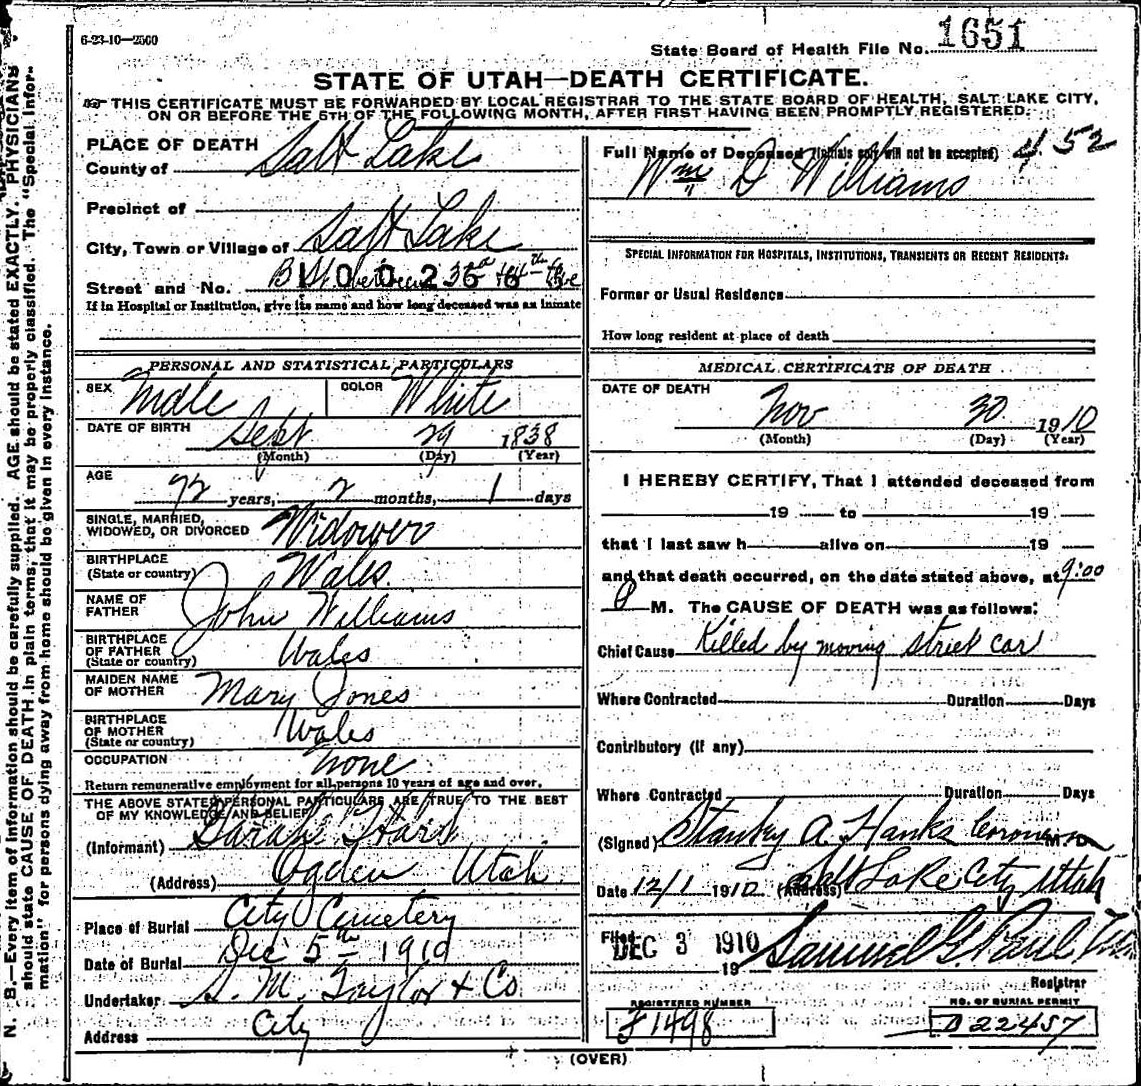 6-23-10—2500
State Board of Health File No. 1651
STATE OF UTAH—DEATH CERTIFICATE.
THIS CERTIFICATE MUST BE FORWARDED BY LOCAL REGISTRAR TO THE STATE BOARD OF HEALTH, SALT LAKE CITY,
ON OR BEFORE THE 5TH OF THE FOLLOWING MONTH, AFTER FIRST HAVING BEEN PROMPTLY REGISTERED.
N. B.—Every item of information should be carefully supplied. AGE should be stated EXACTLY. PHYSICIANS
should state CAUSE OF DEATH in plain terms, that it may be properly classified. The "Special Infor-
mation" for persons dying away from home should be given in every instance.
PLACE OF DEATH
County of Salt Lake
Precinct of
City, Town or Village of Salt Lake
Street and No. B St. between 3rd
1002
If in Hospital or Institution, give its name and how long deceased was an inmate
PERSONAL AND STATISTICAL PARTICULARS
SEX Male COLOR White
DATE OF BIRTH Sept 29 1838
(Month) (Day) (Year)
AGE
72 years, 2 months, 1 days
SINGLE, MARRIED,
WIDOWED, OR DIVORCED Widower
BIRTHPLACE
(State or country) Wales
NAME OF
FATHER John Williams
BIRTHPLACE
OF FATHER
(State or country) Wales
MAIDEN NAME
OF MOTHER Mary Jones
BIRTHPLACE
OF MOTHER
(State or country) Wales
OCCUPATION none
Return remunerative employment for all persons 10 years of age and over.
THE ABOVE STATED PERSONAL PARTICULARS ARE TRUE TO THE BEST
OF MY KNOWLEDGE AND BELIEF
(Informant) Sarah
(Address) Ogden Utah
Place of Burial City Cemetery
Date of Burial Dec 5th 1910
Undertaker S. M. Taylor & Co
Address City
Full Name of Deceased (Initials only will not be accepted) 452
Wm D Williams
SPECIAL INFORMATION FOR HOSPITALS, INSTITUTIONS, TRANSIENTS OR RECENT RESIDENTS:
Former or Usual Residence
How long resident at place of death
MEDICAL CERTIFICATE OF DEATH
DATE OF DEATH
Nov 30 1910
(Month) (Day) (Year)
I HEREBY CERTIFY, That I attended deceased from
19 to 19
that I last saw h alive on 19
and that death occurred, on the date stated above, at 9:00
P M. The CAUSE OF DEATH was as follows:
Chief Cause Killed by moving street car
Where Contracted Duration Days
Contributory (if any)
Where Contracted Duration Days
(Signed) Stanley A. Hanks Coroner M. D.
Date 12/1 1910 (Address) Salt Lake City Utah
Filed DEC 3 1910 Samuel G. Paul
19
Registrar
REGISTERED NUMBER
J1498
NO. OF BURIAL PERMIT
B22457
(OVER)